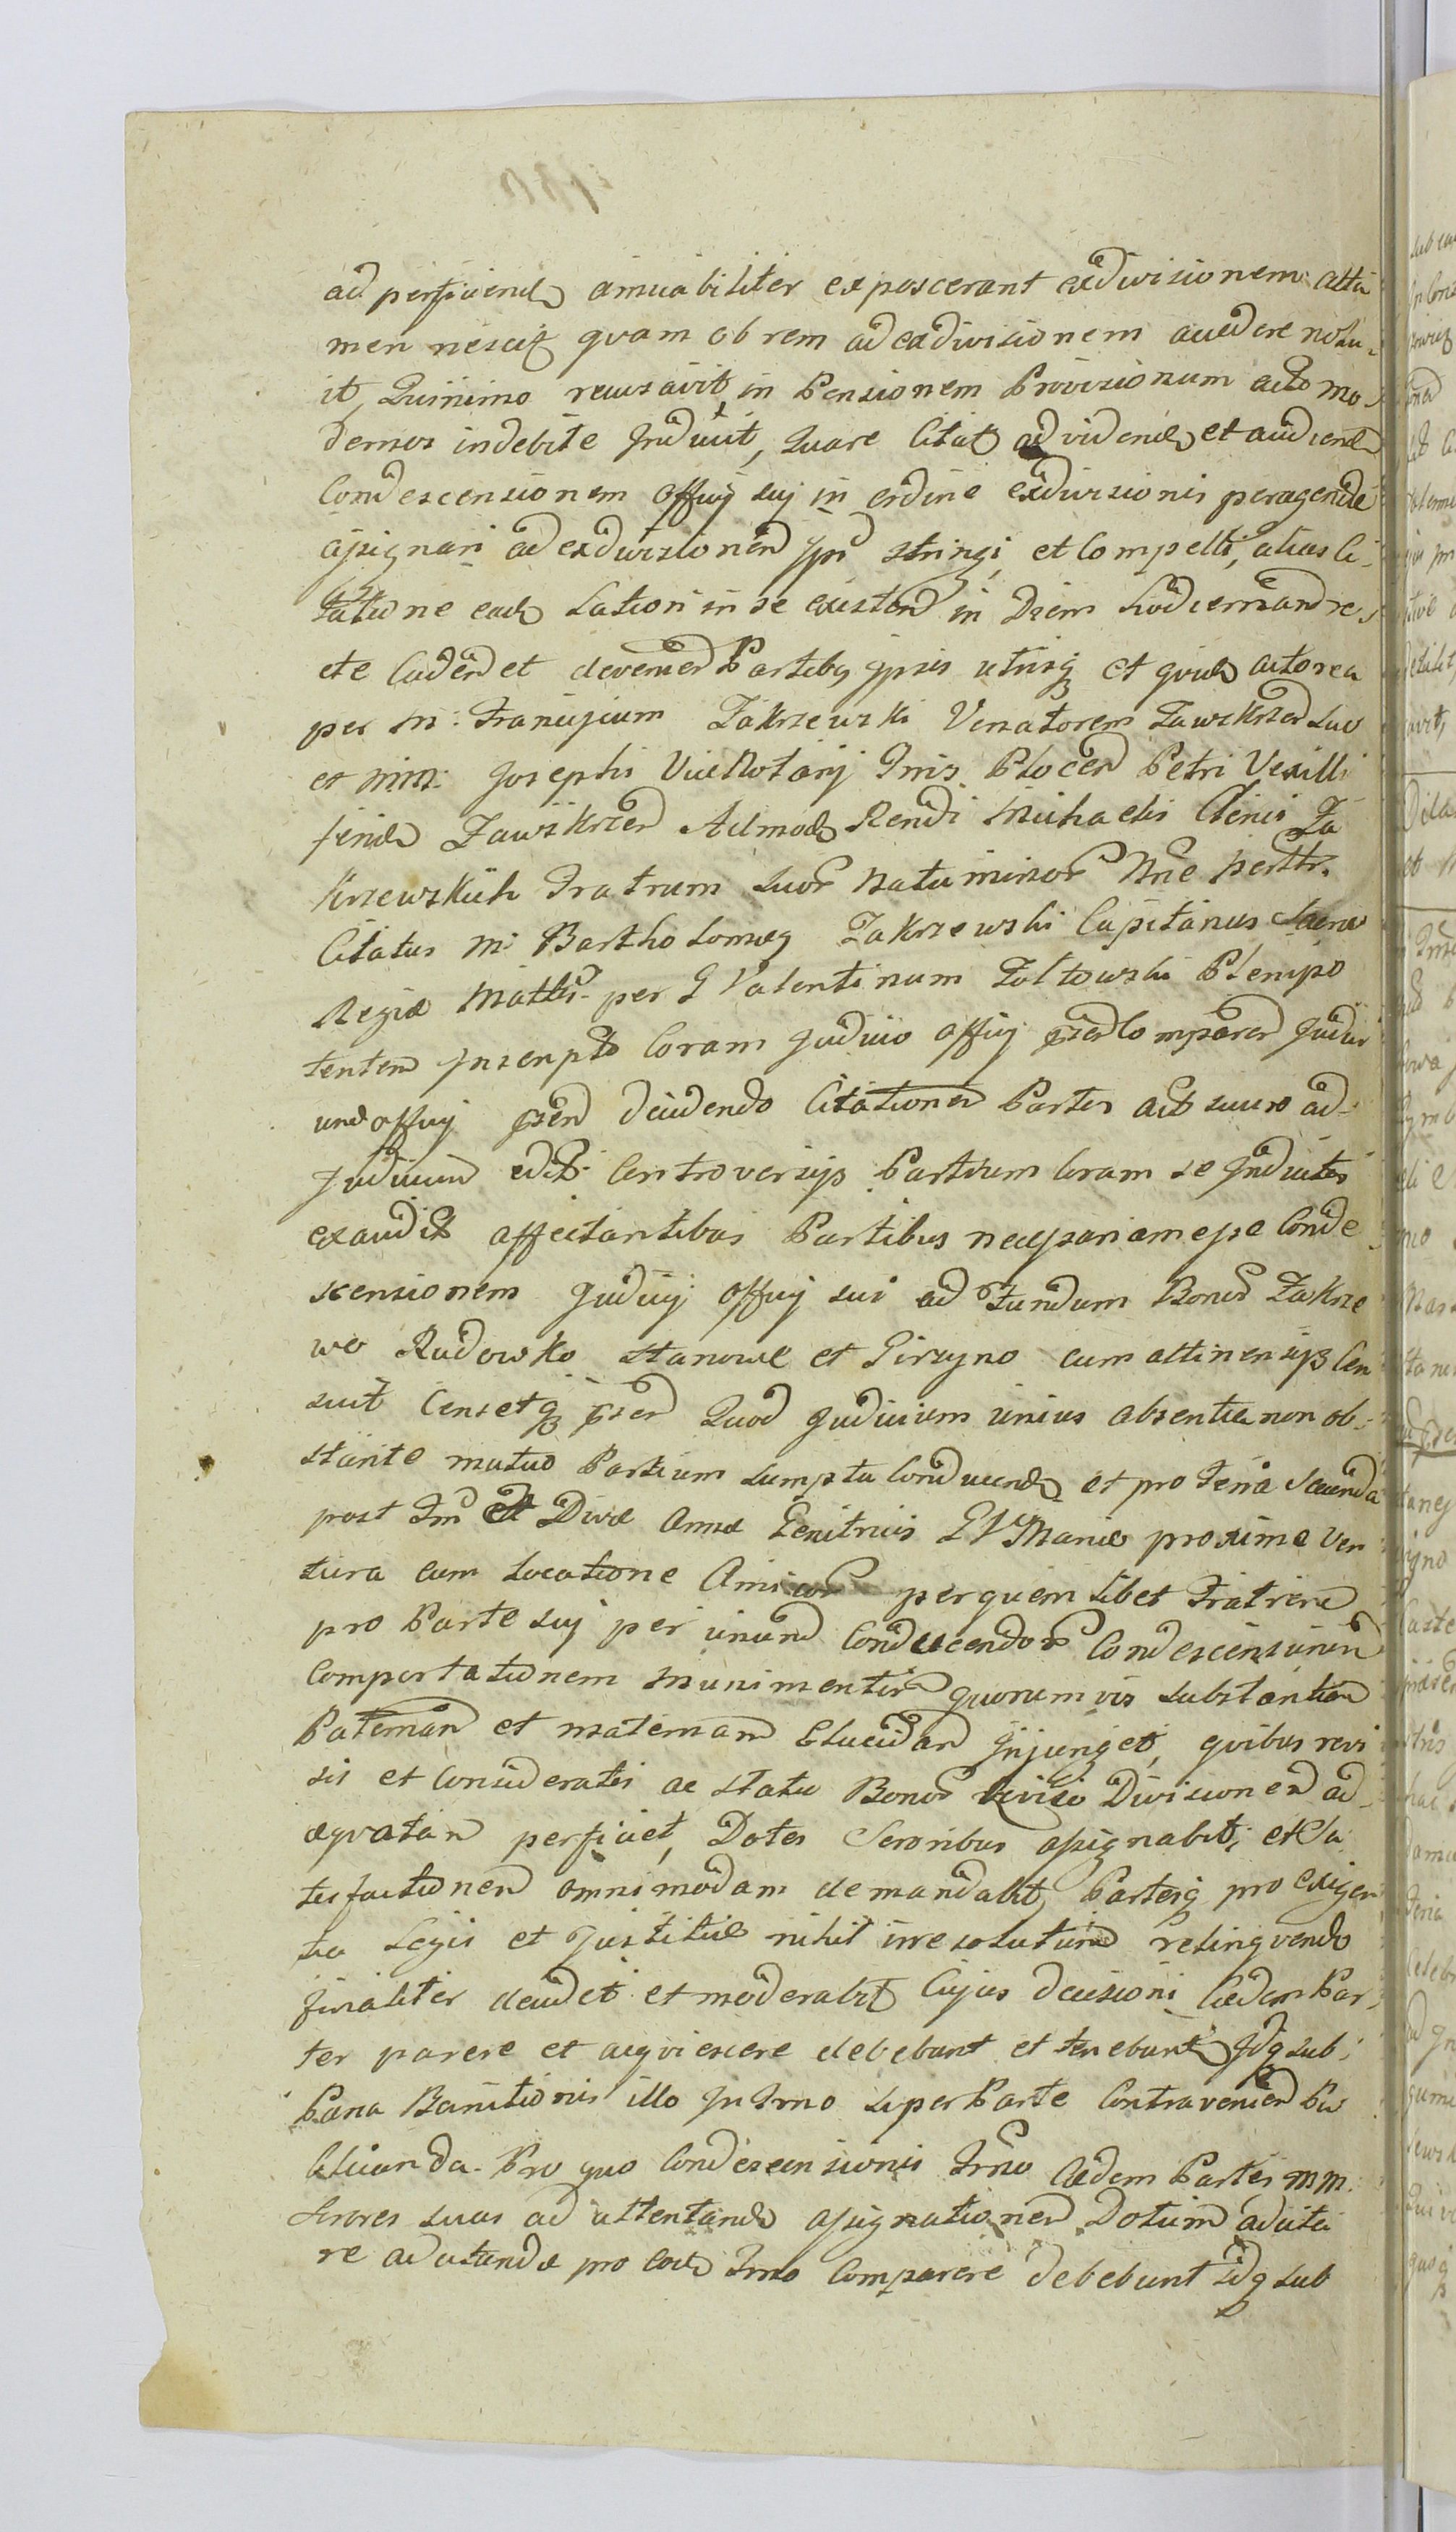 ad perficiend amicabiliter exposcerant exdivisionem atta
men nescitq quam obrem ad exdivisionem accedere nolu-
it, Quinimo recusavit, in Pensionem Provisionum acto mo-
dernos indebite Induxit, Quare Citat ad vidend et audiend
Condescensionem Officij suj in ordine exdivisionis peragendae
assignari ad exdivisionem ipsi stringi, et Compelli, alias Ci-
tatione ead Lationi in se existen in Diem hodiernam re-
cte Caden et devenien Partibq ipsis utrisq et quid actorea
per M: Franciscum Zakrzewski Venatorem Zawskrzen suo
et MM: Josephi ViceNotarij Tris Plocen Petri Vexilli
feride Zawskrzen Admod Rendi Michaelis Clerici Za
krzewskich Fratrum suor natu minor Nne personlr.
Citatus M: Bartholomeq Zakrzewski Capitanus Sacrae
Regiae Mattis per G Valentinum Zoltowski Plenipo
tentem Inscripto Coram Judicio Officij psen Comparen Judici
und officij psen decidendo Citationem Partes act suuo ad
Judicium edit Controversijs Partium Coram se Inductis
exaudit affectantibus Partibus necessariam esse Conde
scensionem Judicij Officij sui ad Fundum Bonor Zakrze
wo Rudowko Stanowe et Pirzyno cum attinensijs Cen
suit Censetq psen Quod Judicium unius absentia non ob-
stante mutuo Partium sumptu Conducend et pro Feria Secunda
post Fm Divae Annae Genitricis BV Mariae proxime Ven
tura cum Locatione Amicor per quem libet Fratrem
pro Parte suj per unum Conducendor Condescensurum
Comportationem Munimentor quorumvis substantiam
Paternam et maternam Elucidan Injunget, quibus revi
sis et Consideratis ac statu Bonor reviso Divisionem ad
aequatam perficiet, Dotes Sororibus assignabit, et Sa
tisfactionem omnimodam demandabit, Partesq pro exigen
tia Legis et Justitiae nihil irresolutum relinquendo
finaliter decidet et moderabit Cujus decisioni Eaedem Par-
tes parere et acquiescere debebunt et tenebunt Idq sub
Paena Banitionis illo In Trno super Parte Contravenien Pu
blicanda. Pro quo Condescensionis Trno Eaedem Partes MM:
Sorores suas ad attentand assignationem Dotium adcita
re adcitandae pro eod Trno Comparere debebunt idq sub